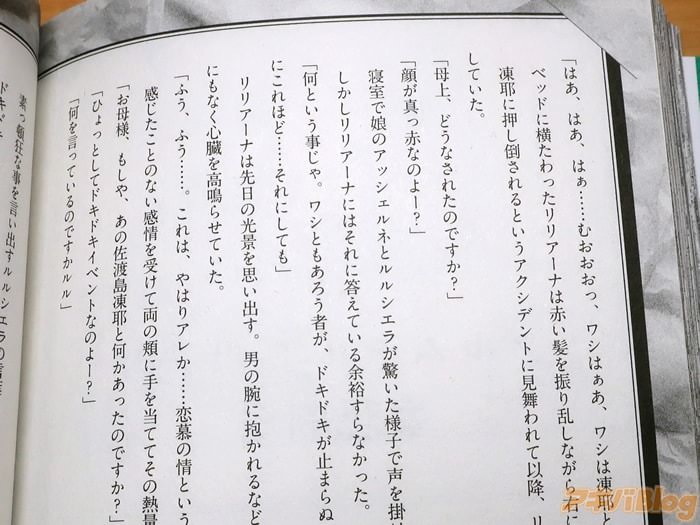 「はあ、はあ、はぁ……むおおおっ、ワシはぁあ、ワシは凍耶と
ベッドに横たわったリリアーナは赤い髪を振り乱しながら右に
凍耶に押し倒されるというアクシデントに見舞われて以降、リ
していた。
「母上、どうなされたのですか？」
「顔が真っ赤なのよー？」
寝室で娘のアッシェルネとルルシエラが驚いた様子で声を掛け
しかしリリアーナにはそれに答えている余裕すらなかった。
「何という事じゃ。ワシともあろう者が、ドキドキが止まらぬ
にこれほど……それにしても」
リリアーナは先日の光景を思い出す。男の腕に抱かれるなど
にもなく心臓を高鳴らせていた。
「ふう、ふう……。これは、やはりアレか……恋慕の情という
感じたことのない感情を受けて両の頬に手を当ててその熱量
「お母様、もしや、あの佐渡島凍耶と何かあったのですか？」
「ひょっとしてドキドキイベントなのよー？」
「何を言っているのですかルル」
素っ頓狂な事を言い出すルルシエラの言葉
ドキドキ
アキバBlog